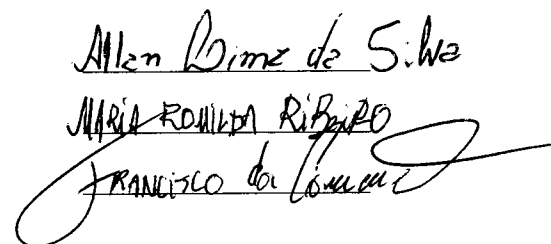 Allan Lima da Silva
MARIA ROMILDA RIBEIRO
FRANCISCO da